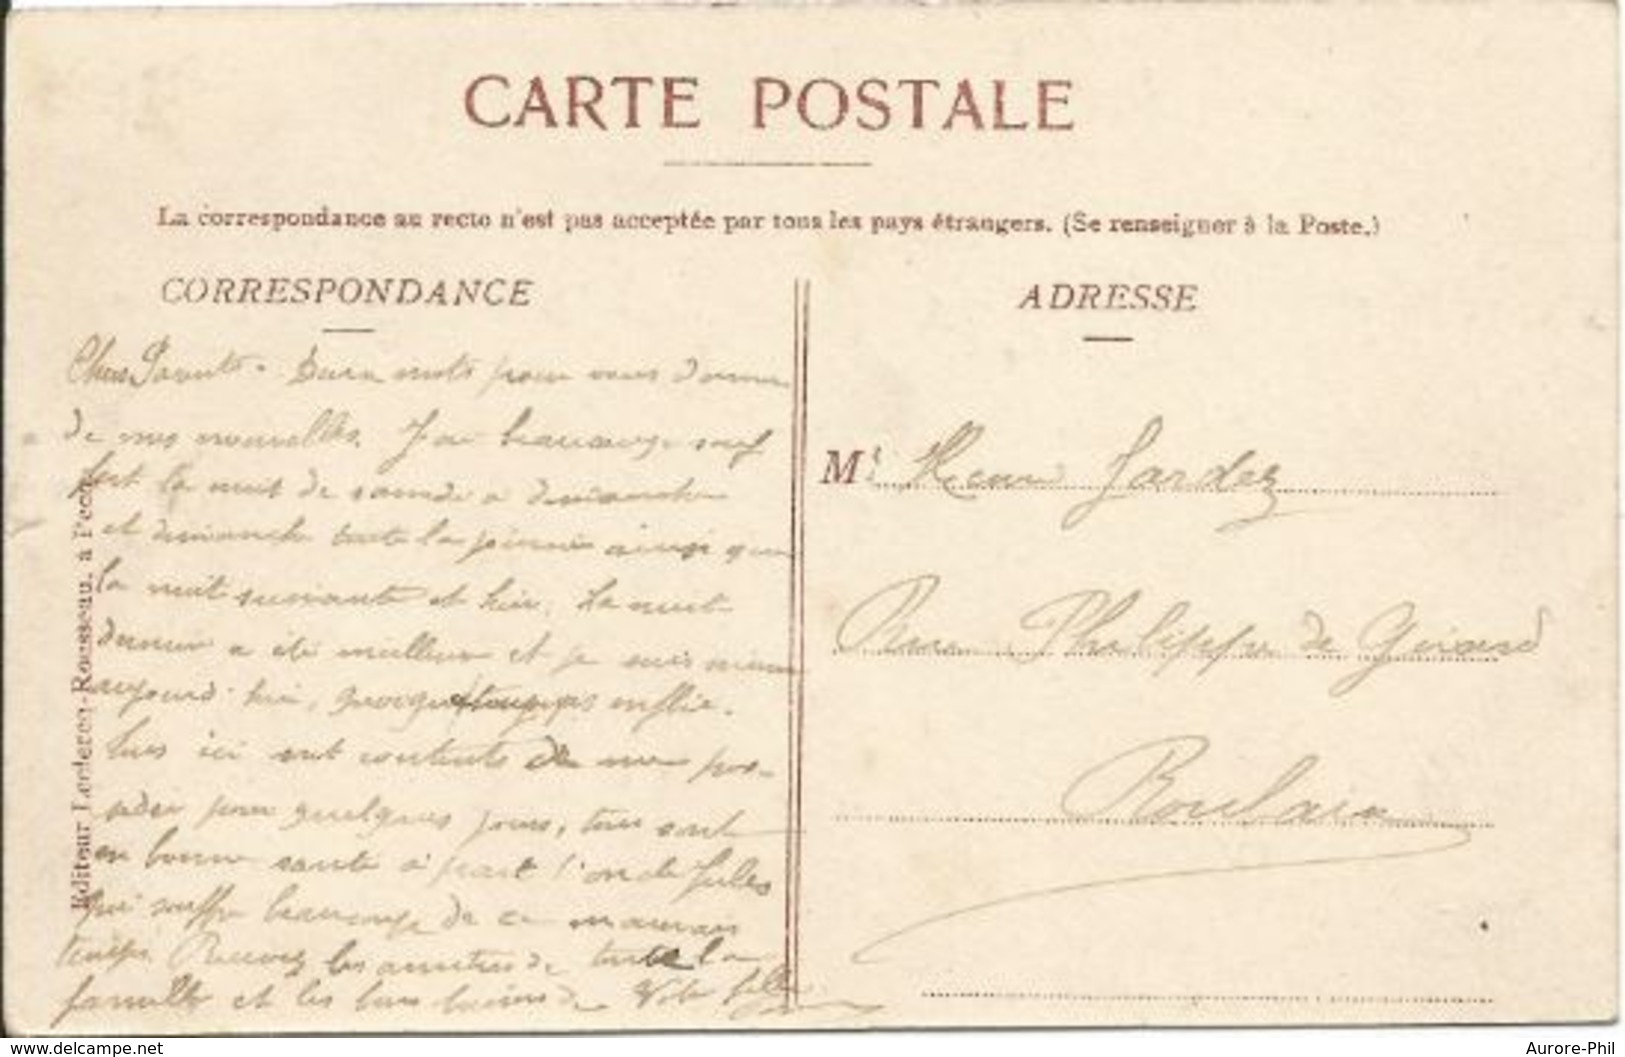 CARTE POSTALE
La correspondance au recto n'est pas acceptée par tous les pays étrangers. (Se renseigner à la Poste.)
CORRESPONDANCE
Chers Parents. Deux mots pour vous donner
de mes nouvelles. J'ai beaucoup souf
fert la nuit de samedi a dimanche
et dimanche toute la journée ainsi que
la nuit suivante et hier. La nuit
dernier a été meilleur et je suis mieux
aujourd'hui, quoique toujours enflée.
Tous ici sont contents de me pos-
séder pour quelques jours, tous sont
en bonne santé à part l'oncle Jules
qui souffre beaucoup de ce mauvais
temps. Recevez les amitiés de toute la
famille et les bons baisers de Votre fille
ADRESSE
Mr Henri Jardez
Rue Philippe de Girard
Roubaix
Editeur Leclercq-Rousseau, à Pecq
www.delcampe.net
Aurore-Phil